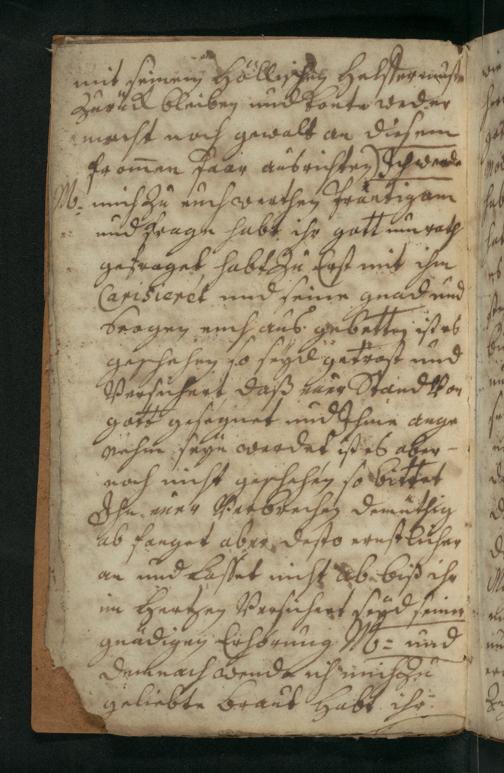 mit seinem Höllischen Helffer muste
Zurück bleiben und konte weder
macht noch gewalt an diesem
frommen Paar ausrichten) Ich wende
N: mich Zu euch werthen Bräutigam
und frage habt ihr gott um rath
gefraget, habt Zu Erst mit ihm
Cariëieret und seine gnad und
Seegen euch aus gebetten ist es
geschehen so seyd getrost und
Versichert daß euer Stand von
gott gesegnet und Ihme ange
nehm seyn werdet ist es aber
noch nicht geschehen so bittet
Ihn euer Verbrechen demüthig
ab fanget aber desto ernstlicher
an und lasset nicht ab biß ihr
im Hertzen Versichert seyd seiner
gnädigen Erhörung N: und
demnach wende ich mich Zu
geliebte Braut habt ihr